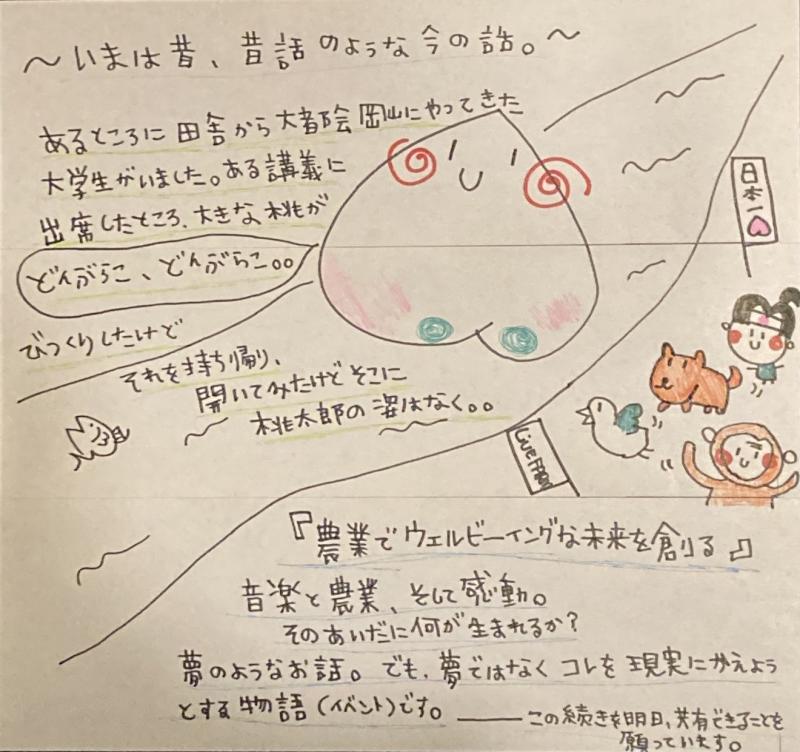 〜いまは昔、昔話のような今の話。〜
あるところに田舎から大都会岡山にやってきた
大学生がいました。ある講義に
出席したところ、大きな桃が
どんぶらこ、どんぶらこ。。
びっくりしたけど
それを持ち帰り、
開いてみたけどそこに
桃太郎の姿はなく。。
日本一
Live FARM
『農業でウェルビーイングな未来を創る』
音楽と農業、そして感動。
そのあいだに何が生まれるか?
夢のようなお話。でも、夢ではなくコレを現実にかえよう
とする物語(イベント)です。
――この続きを明日、共有できることを
願っています。